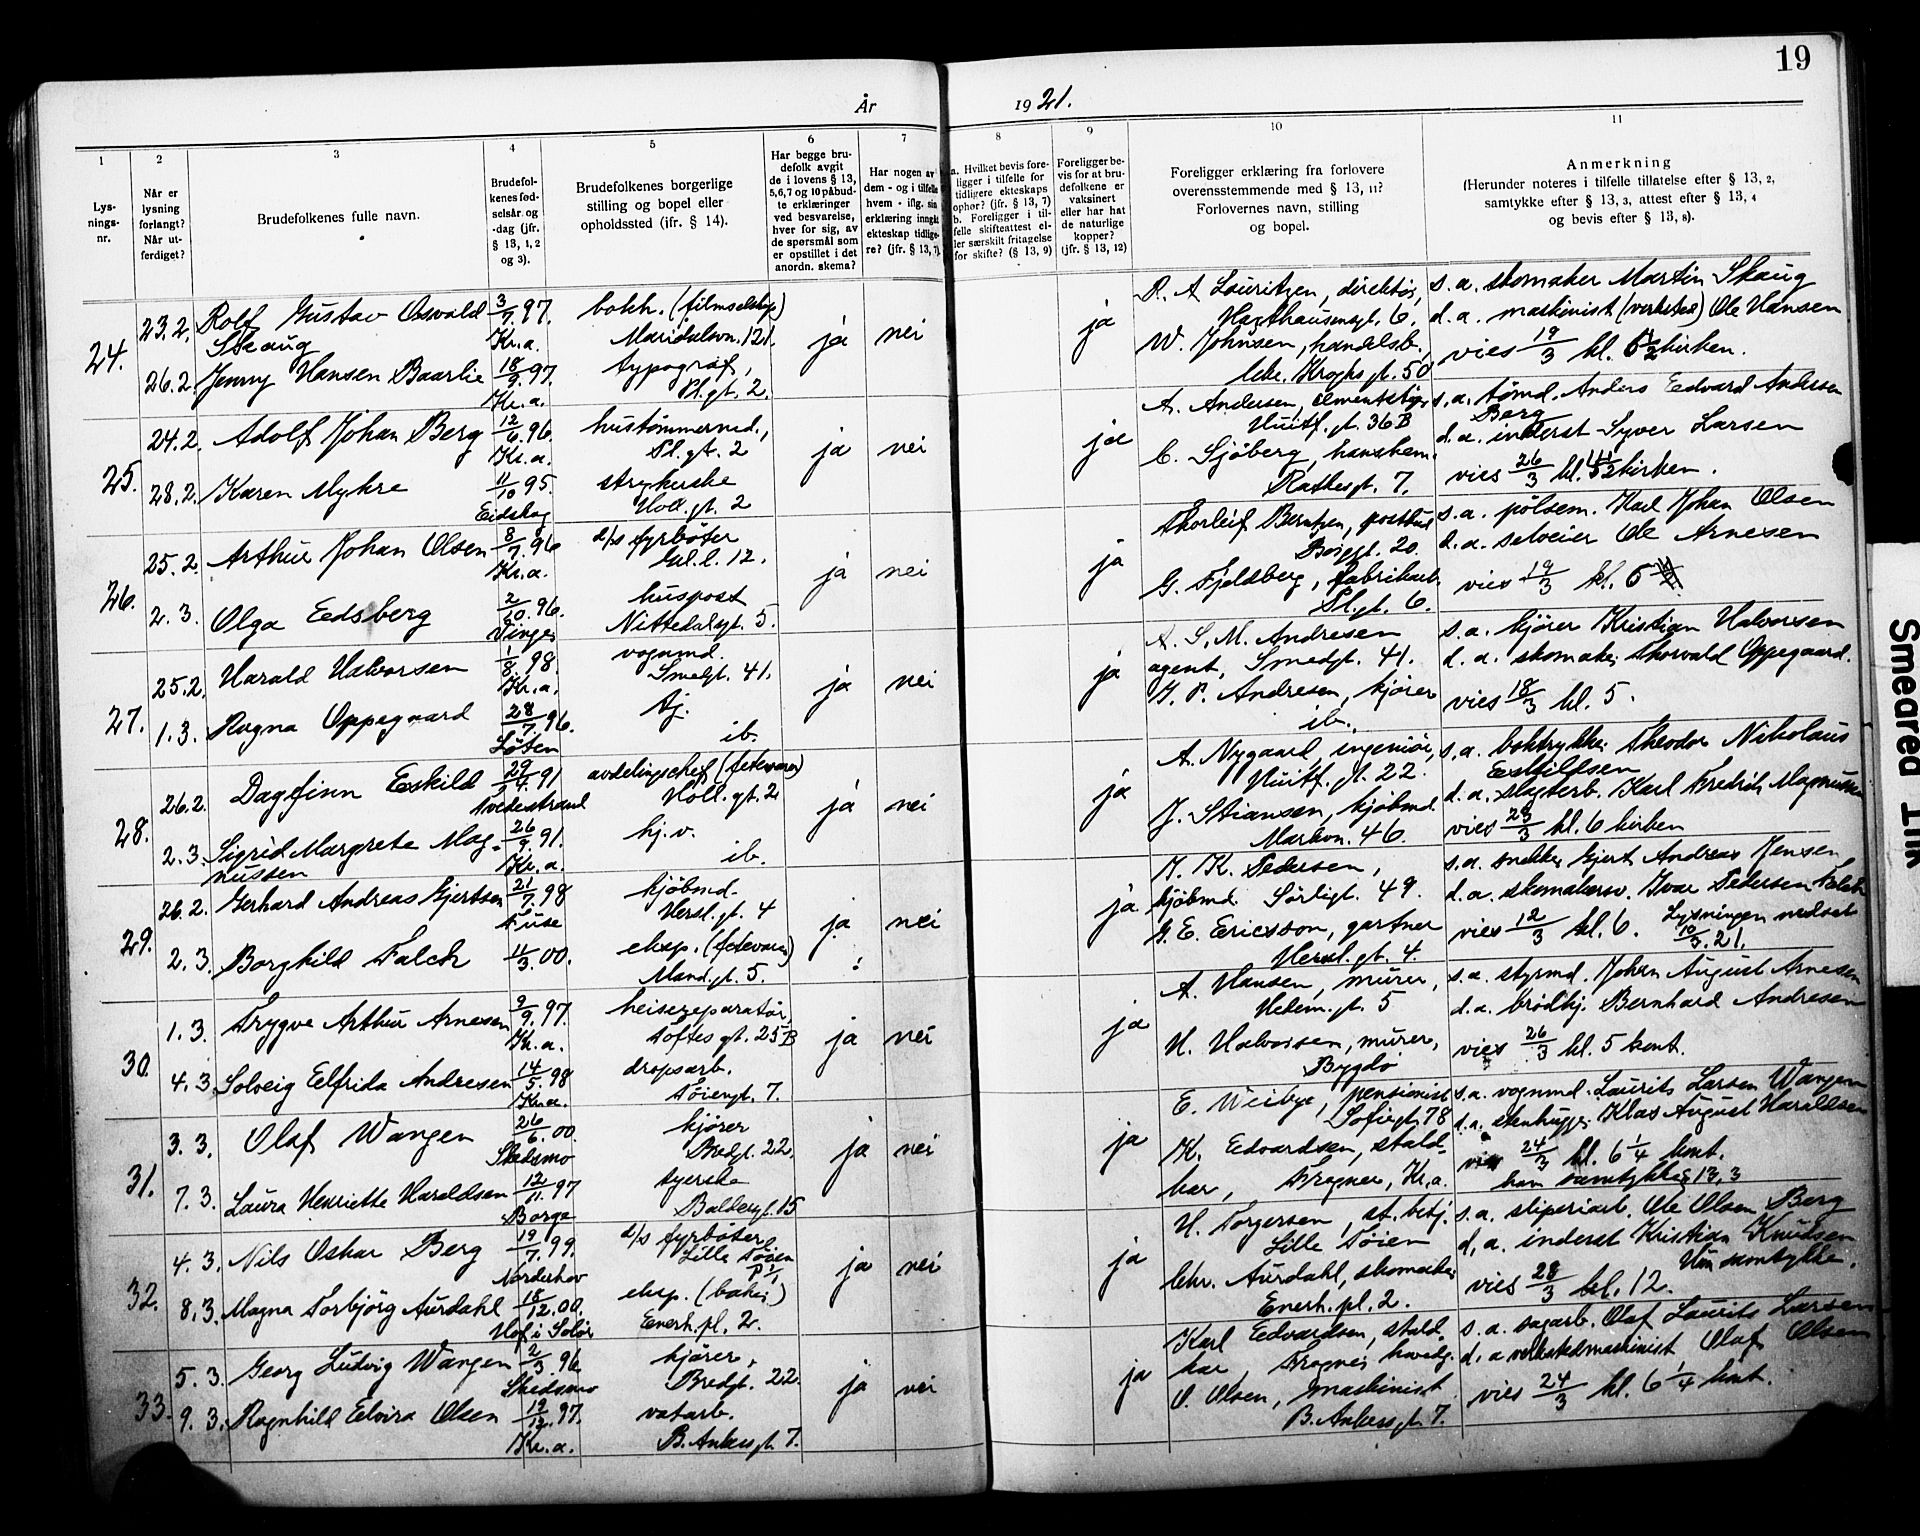 19
År 1921.
1
Lysningsnr.
2
Når er lysning forlangt? Når utferdiget?
3
Brudefolkenes fulle navn.
4
Brudefolkenes fødselsår og -dag (jfr. § 13, 1, 2 og 3).
5
Brudefolkenes borgerlige stilling og bopel eller opholdssted (jfr. § 14).
6
Har begge brudefolk avgit de i lovens § 13, 5,6,7 og 10 påbudte erklæringer ved besvarelse, hver for sig, av de spørsmål som er opstillet i det anordn. skema?
7
Har nogen av dem - og i tilfelle hvem - iflg. sin erklæring inngåt ekteskap tidligere? (jfr. § 13, 7)
8
a. Hvilket bevis foreligger i tilfelle for tidligere ekteskaps ophør? (jfr. § 13, 7)
b. Foreligger i tilfelle skifteattest eller særskilt fritagelse for skifte? (§ 13, 9)
9
Foreligger bevis for at brudefolkene er vaksinert eller har hat de naturlige kopper? (jfr. § 13, 12)
10
Foreligger erklæring fra forlovere overensstemmende med § 13, 11? Forlovernes navn, stilling og bopel.
11
Anmerkning
(Herunder noteres i tilfelle tillatelse efter § 13, 2, samtykke efter § 13, 3, attest efter § 13, 4 og bevis efter § 13, 8).
24.
23.2. Rolf Gustav Osvald Skaug 3/7.97. Kr.a. bokh. (filmselskap) Maridalsvn. 121.
26.2. Jenny Hansen Baarlie 18/9.97. Kr.a. typograf, Pl.gt. 2.
ja nei ja
R. A. Lauritzen, direktør, Hagthausensgt. 6.
W. Johnsen, handelsb., Chr. Kroghs gt. 50
s.a. skomaker Martin Skaug
d.a. maskinist (verksted) Ole Hansen
vies 19/3 kl. 5 1/2 kirken.
25.
24.2. Adolf Johan Berg 12/6.96. Kr.a. hustømmermd., Pl.gt. 2
28.2. Karen Myhre 11/10 95. Eidskog strykerske Holl.gt. 2
ja nei ja
A. Andersen, Huitf.gt. 36B
C. Sjöberg, hanskem. Rathesgt. 7.
s.a. tømd. Anders Edvard Andersen Berg
d.a. inderst Syver Larsen
vies 26/3 kl. kirken.
26.
25.2. Arthur Johan Olsen 8/7.96 Kr.a. d/s fyrbøter Gal.l. 12.
2.3. Olga Edsberg 2/10.96. Vinger huspost Nittedalsgt. 5.
ja nei ja
Thorleif Berntzen, postbud Borggt. 20.
G. Fjeldberg, fabrikarb. Pl.gt. 6.
s.a. pølsem. Karl Johan Olsen
d.a. selveier Ole Arnesen
vies 19/3 kl. 5
27.
25.2. Harald Halvorsen 1/8.98. Kr.a. vognmd. Smedgt. 41.
1.3. Ragna Oppegaard 28/7.96. Løten tj. ib.
ja nei ja
A. S. M. Andresen agent, Smedgt. 41.
H. P. Andresen, kjører ib.
s.a. kjører Kristian Halvorsen
d.a. skomaker Thorvald Oppegaard.
vies 18/3 kl. 5.
28.
26.2. Dagfinn Eskild 29/4.91 Tvedestrand avdelingschef (fetevarer) Holl.gt. 2
2.3. Sigrid Margrete Magnussen 26/9.91. Kr.a. hj.v. ib.
ja nei ja
A. Nygaard, ingeniør, Huitf.gt. 22.
J. Stiansen, kjøbmd. Markvn. 46.
s.a. boktrykker Theodor Nikolaus Eskildsen
d.a. slagterb. Karl Fredrik Magnussen
vies 23/3 kl. 6 kirken
29.
26.2. Gerhard Andreas Gjertsen 21/7.98 Fuse kjøbmd. Hersl.gt. 4
2.3. Borghild Falch 11/3.00. eksp. (fetevarer) Mand.gt. 5.
ja nei ja
H. K. Pedersen, kjøbmd. Sørligt. 49.
G. E. Ericsson, gartner Hersl.gt. 4.
s.a. snekker Gjert Andreas Jensen
d.a. skomakersv. Ivar Pedersen Falch
vies 12/3 kl. 6. Lysningen nedsat 10/3.21.
30.
1.3. Trygve Arthur Arnesen 9/9.97. Kr.a. heisereparatør, Toftes gt. 25B
4.3. Solveig Elfrida Andresen 14/5.98 Kr.a. dropsarb. Tøiengt. 7.
ja nei ja
A. Hansen, murer, Hedem.gt. 5
H. Halvorsen, murer, Bygdø
s.a. styrmd. Johan August Arnesen
d.a. brødkj. Bernhard Andresen
vies 26/3 kl. 5 kont.
31.
3.3. Olaf Wangen 26/6.00. Skedsmo kjører Bredgt. 22.
7.3. Laura Henriette Haraldsen 12/11.97 Borge syerske Baldersgt. 15
ja nei ja
E. Weibye, pensionist Sofiesgt. 78
K. Edvardsen, staldkar, Frogner, Kr.a.
s.a. vognmd. Laurits Larsen Wangen
d.a. stenhugger Klas August Haraldsen
vies 24/3 kl. 6 1/4 kont.
han samtykke § 13,3
32.
4.3. Nils Oskar Berg 19/7.99. Norderhov d/s fyrbøter Lille Tøien P 1/1
8.3. Magna Torbjörg Aurdahl 18/12.00. Hof i Solør eksp. (baker) Enerh.pl. 2.
ja nei ja
H. Torgersen, st. betj. Lille Tøien
Chr. Aurdahl, skomaker Enerh.pl. 2.
s.a. sliperiarb. Ole Olsen Berg
d.a. inderst Kristian Knudsen
vies 28/3 kl. 12. Hun samtykke.
33.
5.3. Georg Ludvig Wangen 2/3 96 Skedsmo kjører, Bredgt. 22.
9.3. Ragnhild Elvira Olsen 19/12.97. Kr.a. vatarb. B. Ankersgt. 7.
ja nei ja
Karl Edvardsen, staldkar, Frogner hovedg.
O. Olsen, maskinist B. Ankersgt. 7.
s.a. sagarb. Olaf Laurits Larsen
d.a. verkstedmaskinist Olaf Olsen
vies 24/3 kl. 6 1/4 kont.
Smeared Ink